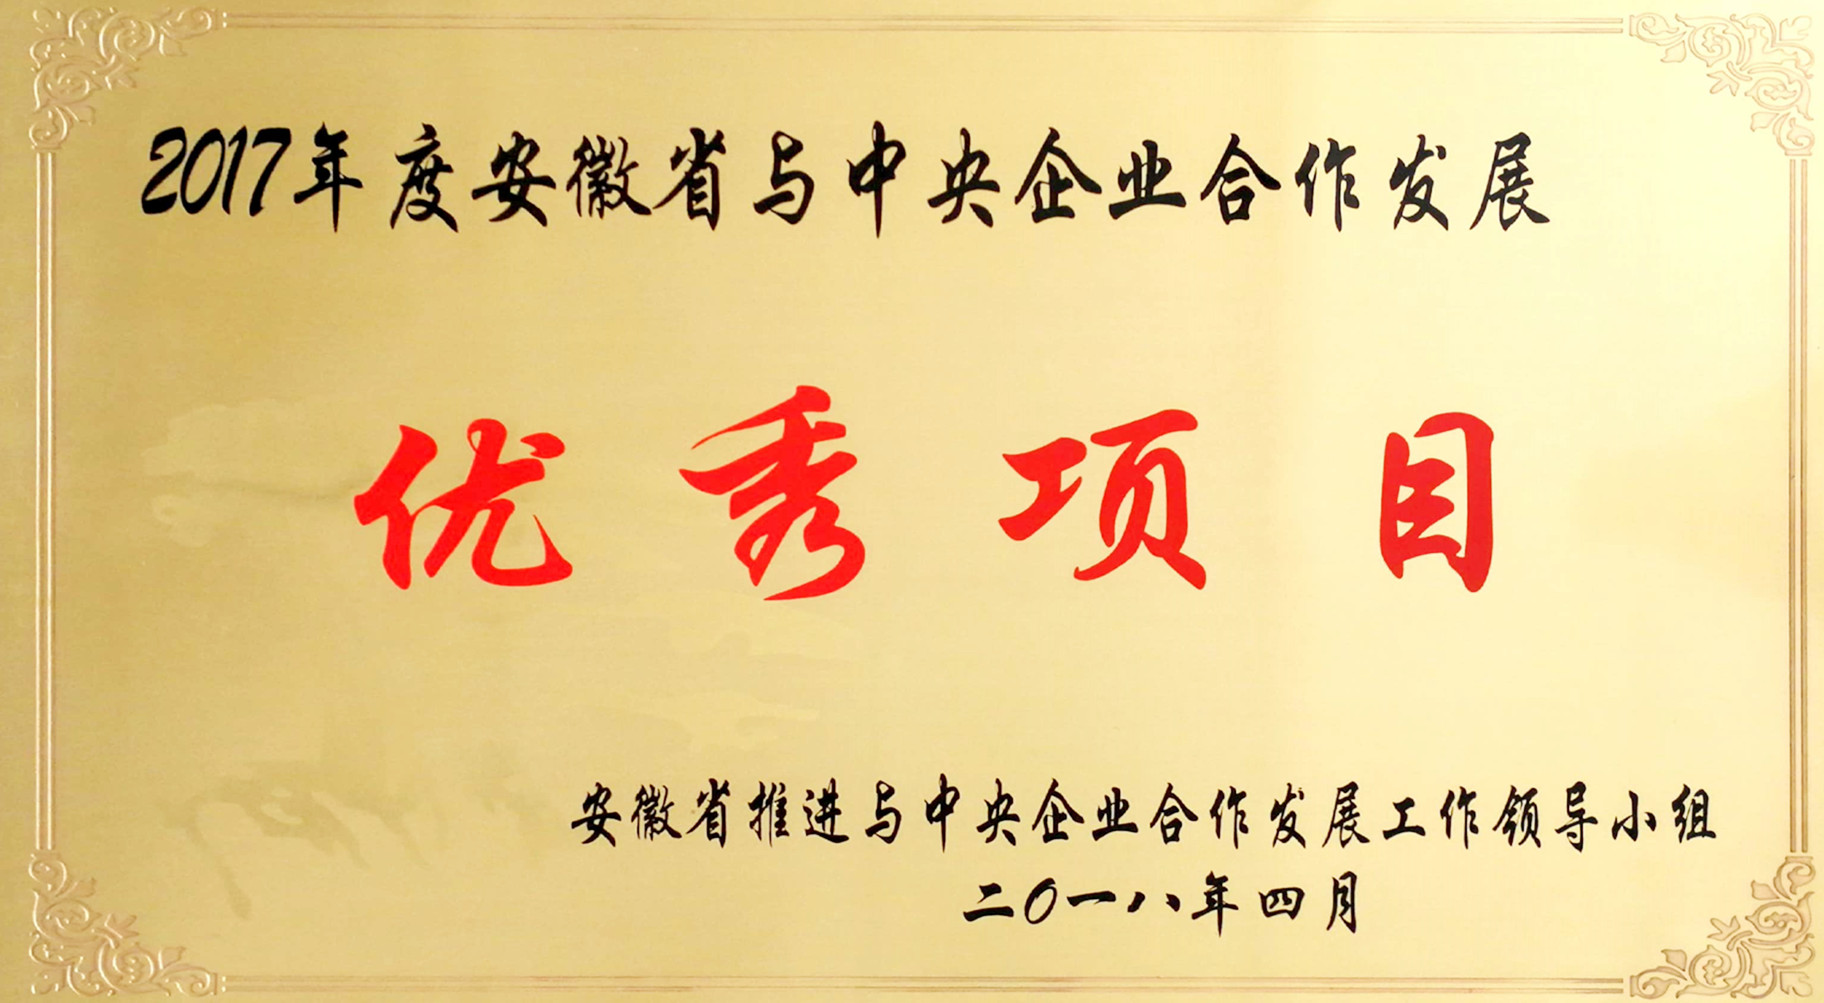 2017年度安徽省与中央企业合作发展
优秀项目
安徽省推进与中央企业合作发展工作领导小组
二〇一八年四月